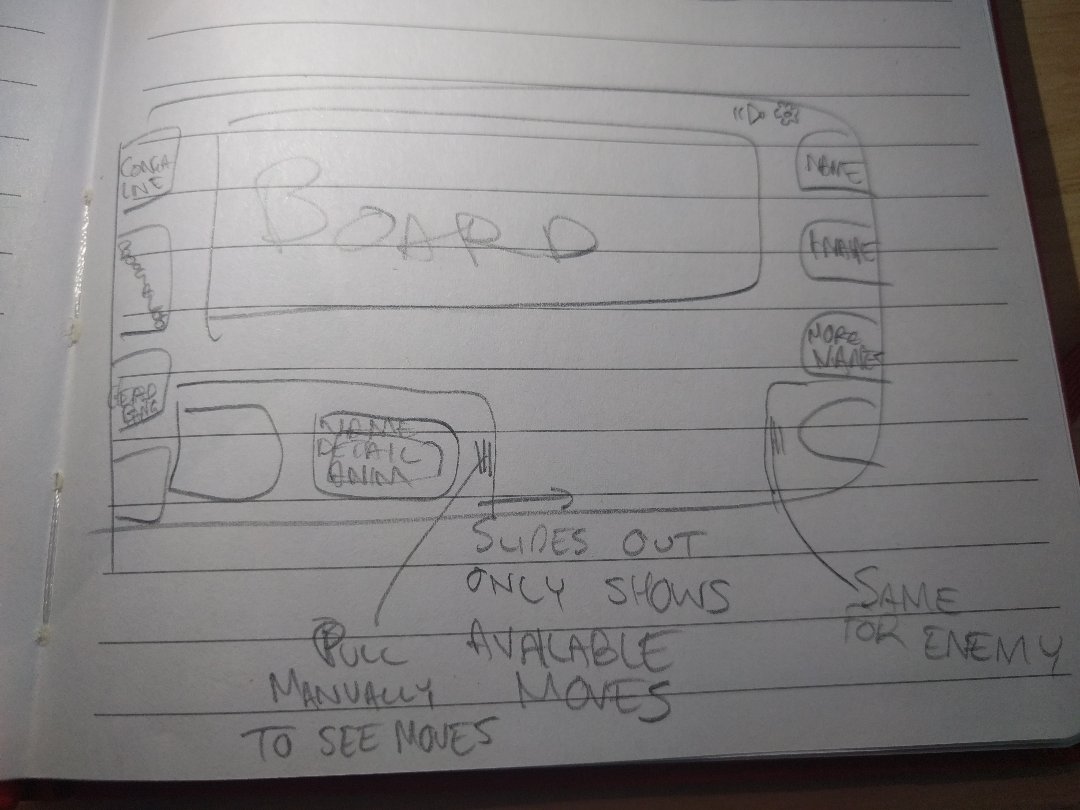 CONGA
LINE
BOARD
NAME
NAME
MORE
NAMES
NAME
DETAIL
ANIM
SLIDES OUT
ONLY SHOWS
AVAILABLE
MOVES
PULL
MANUALLY
TO SEE MOVES
SAME
FOR ENEMY